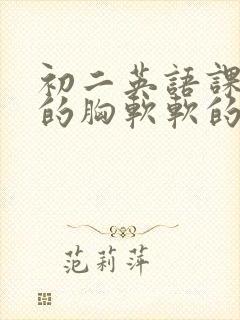 初二英語課
的胸軟軟的
范莉萍